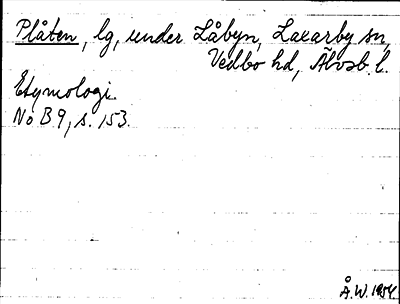 Plåten, lg, under Låbyn, Laxarby sn,
Vedbo hd, Älvsb. l.
Etymologi.
No B 9, s. 153.
Å.W. 1954.